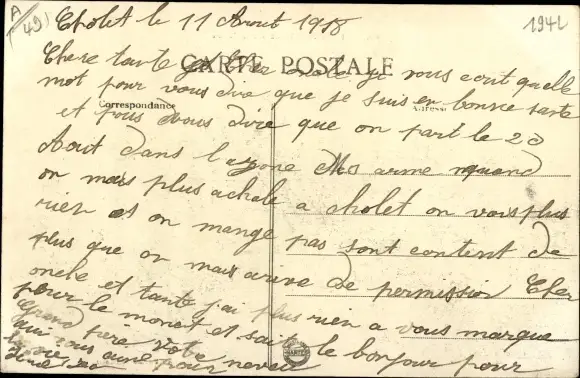 A
49)
1942
Cholet le 11 Aout 1918
CARTE POSTALE
Chere tante et cher oncle je vous ecrit quelle
mot pour vous dire que je suis en bonne sante
Correspondance
Adresse
et puis vous dire que on part le 20
Aout dans l Mos arme quand
on mais plus a cholet on vois plus
rien et on mange pas sont content de
plus que on mais arive de permission Cher
oncle et tante j'ai plus rien a vous marque
pour le moment et saite le bonjour pour
grand père votre neveu
qui vous aime pour
la vie
NANTES